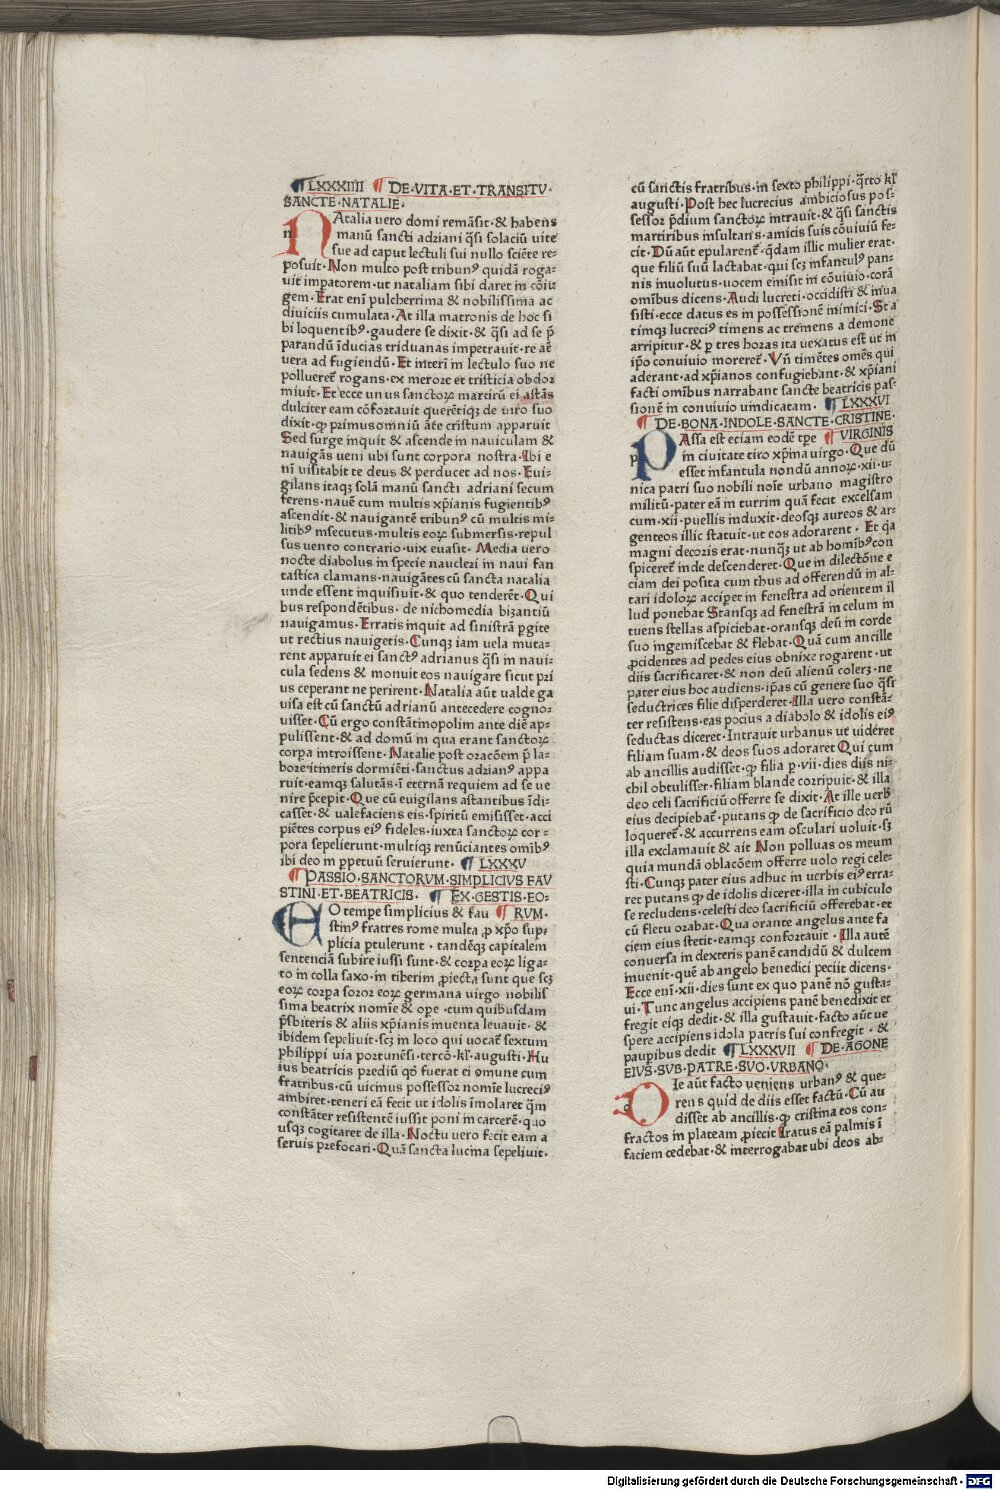 LXXXIIII DE·VITA·ET·TRANSITV·
SANCTE·NATALIE·
NAtalia uero domi remãsit·& habens
manũ sancti adriani q̃si solaciũ uite
sue ad caput lectuli sui nullo sciẽte re-
posuit·Non multo post tribunꝰ quidã roga-
uit impatorem·ut nataliam sibi daret in cõiu
gem·Erat enĩ pulcherrima & nobilissima ac
diuiciis cumulata·At illa matronis de hoc si
bi loquentibꝰ·gaudere se dixit·& q̃si ad se p̃
parandũ ĩducias triduanas impetrauit·re aẽ
uera ad fugiendũ·Et interĩ in lectulo suo ne
pollueret̃ rogans·ex merore et tristicia obdor
miuit·Et ecce unus sanctoꝝ martirũ ei astãs
dulciter eam cõfortauit querẽtiqꝫ de uiro suo
dixit·ꝙ primusomniũ ãte cristum apparuit
Sed surge inquit & ascende in nauiculam &
nauigãs ueni ubi sunt corpora nostra·Ibi e
nĩ uisitabit te deus & perducet ad nos·Eui-
gilans itaqꝫ solã manũ sancti adriani secum
ferens·nauẽ cum multis xp̃ianis fugientibꝰ
ascendit·& nauigantẽ tribunꝰ cũ multis mi-
litibꝰ insecutus·multis eoꝝ submersis·repul
sus uento contrario·uix euasit· Media uero
nocte diabolus in specie naucleri in naui fan
tastica clamans·nauigãtes cũ sancta natalia
unde essent inquisiuit·& quo tenderẽt·Qui
bus respondẽtibus· de nichomedia bizantiũ
nauigamus·Erratis inquit ad sinistrã pgite
ut rectius nauigetis·Cunqꝫ iam uela muta-
rent apparuit ei sanctꝰ adrianus q̃si in naui-
cula sedens & monuit eos nauigare sicut pri
us ceperant ne perirent·Natalia aũt ualde ga
uisa est cũ sanctũ adrianũ antecedere cogno-
uisset·Cũ ergo constãtinopolim ante diẽ ap-
pulissent·& ad domũ in qua erant sanctoꝝ
corpa introissent·Natalie post oracõem p̃ la-
bore·itineris dormiẽti·sanctus adrianꝰ appa
ruit·eamqꝫ salutãs·ĩ eternã requiem ad se ue
nire p̃cepit·Que cũ euigilans astantibus ĩdi-
casset·& ualefaciens eis·spiritũ emisisset·acci
piẽtes corpus eiꝰ fideles·iuxta sanctoꝝ cor-
pora sepelierunt·multiqꝫ renũciantes omĩbꝰ
ibi deo in ppetuũ seruierunt· LXXXV
PASSIO·SANCTORVM·SIMPLICIVS FAV
STINI·ET·BEATRICIS· EX·GESTIS·EO-
EO tempe simplicius & fau RVM·
stinꝰ fratres rome multa ꝓ xp̃o sup-
plicia ptulerunt·tandẽqꝫ capitalem
sentenciã subire iussi sunt·& corpa eoꝝ liga-
to in colla saxo·in tiberim ꝓiecta sunt que scꝫ
eoꝝ corpa soror eoꝝ germana uirgo nobilis
sima beatrix nomĩe & ope·cum quibusdam
p̃sbiteris & aliis xp̃ianis inuenta leuauit·&
ibidem sepeliuit·scꝫ in loco qui uocat̃ sextum
philippi uia portunẽsi·tercõ·kl̃·augusti·Hu
ius beatricis prediũ qd̃ fuerat ei ꝯmune cum
fratribus·cũ uicinus possessor nomĩe lucreciꝰ
ambiret·teneri eã fecit ut idolis ĩmolaret q̃m
constãter resistentẽ iussit poni in carcerẽ·quo
usqꝫ cogitaret de illa·Noctu uero fecit eam a
seruis prefocari·Quã sancta lucina sepeliuit·
cũ sanctis fratribus·in sexto philippi·q̃rto kl̃
augusti·Post hec lucrecius ambiciosus pos-
sessor p̃dium sanctoꝝ intrauit·& q̃si sanctis
martiribus insultans·amicis suis cõuiuiũ fe-
cit·Dũ aũt epularent̃·q̃dam illic mulier erat·
que filiũ suũ lactabat·qui scꝫ infantulꝰ pan-
nis inuolutus·uocem emisit in cõuiuio·corã
omĩbus dicens·Audi lucreti·occidisti & inua
sisti·ecce datus es in possessionẽ inimici·Sta
timqꝫ lucreciꝰ timens ac tremens a demone
arripitur·& p tres horas ita uexatus est ut in
ip̃o conuiuio moreret̃·Vñ timẽtes omẽs qui
aderant·ad xp̃ianos confugiebant·& xp̃iani
facti omĩbus narrabant sancte beatricis pas-
sionẽ in conuiuio uindicatam· LXXXVI
DE·BONA·INDOLE·SANCTE·CRISTINE·
PAssa est eciam eodẽ tpe VIRGINIS
in ciuitate tiro xp̃ina uirgo·Que dũ
esset infantula nondũ annoꝝ·xii·u-
nica patri suo nobili noĩe urbano magistro
militũ·pater eã in turrim quã fecit excelsam
cum·xii·puellis induxit·deosqꝫ aureos & ar-
genteos illic statuit·ut eos adorarent· Et q̃a
magni decoris erat·nunqꝫ̃ ut ab homĩbꝰ con
spiceret̃ inde descenderet·Que in dilectõne e
ciam dei posita cum thus ad offerendũ in al-
tari idoloꝝ acciperet in fenestra ad orientem il
lud ponebat Stansqꝫ ad fenestrã in celum in
tuens stellas aspiciebat·oransqꝫ deũ in corde
suo ingemiscebat & flebat·Quã cum ancille
ꝓcidentes ad pedes eius obnixe rogarent·ut
diis sacrificaret·& non deũ alienũ coleret·ne
pater eius hoc audiens·ip̃as cũ genere suo q̃si
seductrices filie disperderet·Illa uero constã-
ter resistens·eas pocius a diabolo & idolis eiꝰ
seductas diceret·Intrauit urbanus ut uideret
filiam suam·& deos suos adoraret Qui cum
ab ancillis audisset·ꝙ filia p·vii·dies diis ni-
chil obtulisset·filiam blande corripuit·& illa
deo celi sacrificiũ offerre se dixit·At ille uerb̃
eius decipiebat̃·putans ꝙ de sacrificio deo rũ
loqueret̃·& accurrens eam osculari uoluit·sꝫ
illa exclamauit & ait Non polluas os meum
quia mundã oblacõem offerre uolo regi cele-
sti·Cunqꝫ pater eius adhuc in uerbis eiꝰ erra-
ret putans ꝙ de idolis diceret·illa in cubiculo
se recludens·celesti deo sacrificiũ offerebat·et
cũ fletu orabat·Qua orante angelus ante fa
ciem eius stetit·eamqꝫ confortauit·Illa autẽ
conuersa in dexteris panẽ candidũ & dulcem
inuenit·quẽ ab angelo benedici peciit dicens·
Ecce enĩ·xii·dies sunt ex quo panẽ nõ gusta-
ui·Tunc angelus accipiens panẽ benedixit et
fregit eiqꝫ dedit·& illa gustauit·facto aũt ue
spere accipiens idola patris sui confregit·&
paupibus dedit LXXXVII DE·AGONE
EIVS·SVB·PATRE·SVO·VRBANO·
DIe aũt facto ueniens urbanꝰ & que-
rens quid de diis esset factũ·Cũ au
disset ab ancillis·ꝙ cristina eos con-
fractos in plateam ꝓiecit Iratus eã palmis ĩ
faciem cedebat·& interrogabat ubi deos ab-
Digitalisierung gefördert durch die Deutsche Forschungsgemeinschaft - DFG